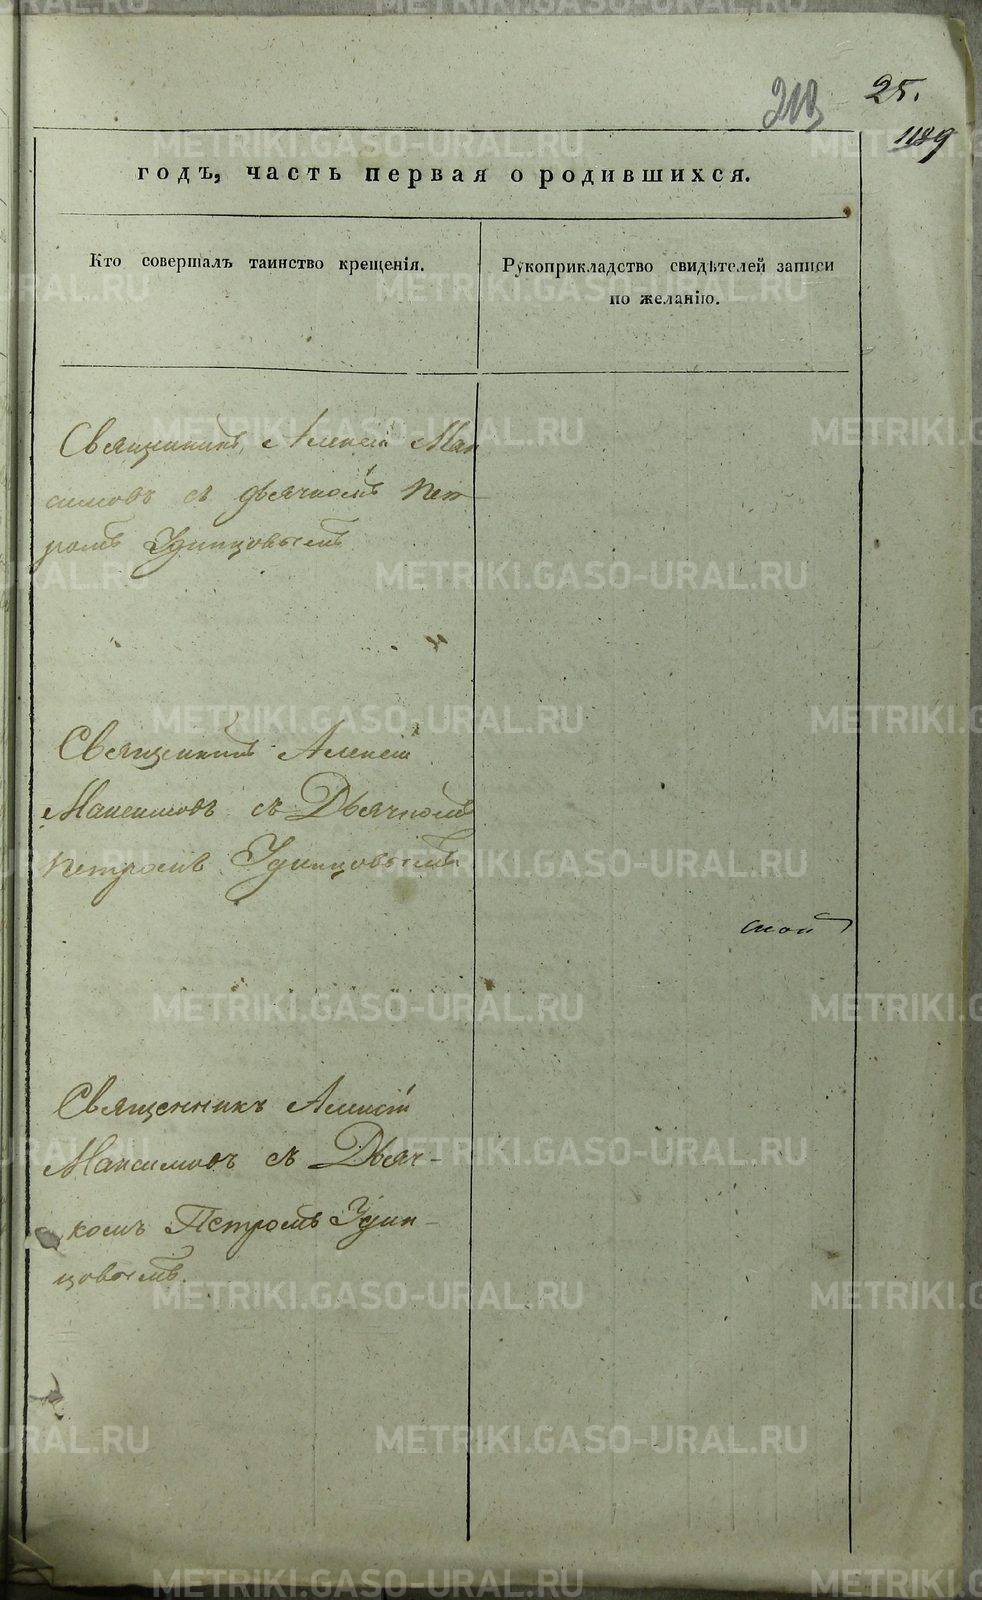 25.
213
1189
годъ, часть первая о родившихся.
Кто совершалъ таинство крещенія.
Рукоприкладство свидѣтелей записи
по желанію.
Священникъ Алексій Мак
симовъ съ дьячкомъ Пет
ромъ Удинцовымъ
Священникъ Алексій
Максимовъ съ Дьячкомъ
Петромъ Удинцовымъ
Священникъ Алексій
Максимовъ съ Дьяч-
комъ Петромъ Удин-
цовымъ.
METRIKI.GASO-URAL.RU